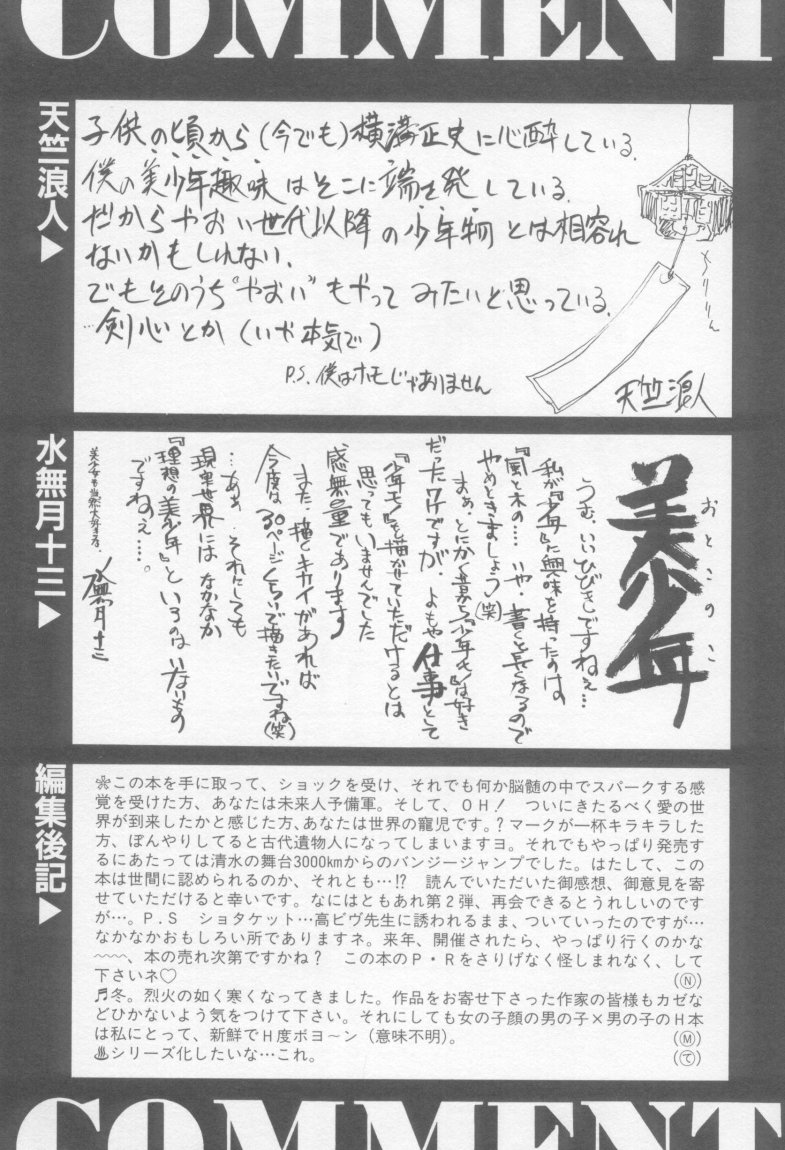 COMMENT
天竺浪人▶
子供の頃から(今でも)横溝正史に心酔している。
僕の美少年趣味はそこに端を発している。
だからやおい世代以降の少年物とは相容れ
ないかもしれない。
でもそのうち“やおい”もやってみたいと思っている。
…剣心とか(いや本気で)
P.S. 僕はホモじゃありません
ちりりん
天竺浪人
水無月十三▶
美少年
おとこのこ
うむ、いいひびきですねえ…
私が『少年』に興味を持ったのは
『風と木の…… いや、書くと長くなるので
やめときましょう(笑)
まぁ、とにかく昔から『少年モノ』は好き
だったワケですが、よもや仕事として
『少年モノ』を描かせていただけるとは
思ってもいませんでした
感無量であります
また、描くキカイがあれば
今度は30ページくらいで描きたいですね(笑)
…ああ、それにしても
現実世界にはなかなか
『理想の美少年』というのはいないもの
ですねぇ……。
美少女も当然大好きな、
水無月十三
編集後記▶
❀この本を手に取って、ショックを受け、それでも何か脳髄の中でスパークする感
覚を受けた方、あなたは未来人予備軍。そして、OH! ついにきたるべく愛の世
界が到来したかと感じた方、あなたは世界の寵児です。?マークが一杯キラキラした
方、ぼんやりしてると古代遺物人になってしまいますヨ。それでもやっぱり発売す
るにあたっては清水の舞台3000kmからのバンジージャンプでした。はたして、この
本は世間に認められるのか、それとも…!? 読んでいただいた御感想、御意見を寄
せていただけると幸いです。なにはともあれ第2弾、再会できるとうれしいのです
が…。P.S ショタケット…高ビヴ先生に誘われるまま、ついていったのですが…
なかなかおもしろい所でありますネ。来年、開催されたら、やっぱり行くのかな
〜〜、本の売れ次第ですかね? この本のP・Rをさりげなく怪しまれなく、して
下さいネ♡ Ⓝ
♬冬。烈火の如く寒くなってきました。作品をお寄せ下さった作家の皆様もカゼな
どひかないよう気をつけて下さい。それにしても女の子顔の男の子×男の子のH本
は私にとって、新鮮でH度ボヨ〜ン(意味不明)。 Ⓜ
♨シリーズ化したいな…これ。 ㋢
COMMENT